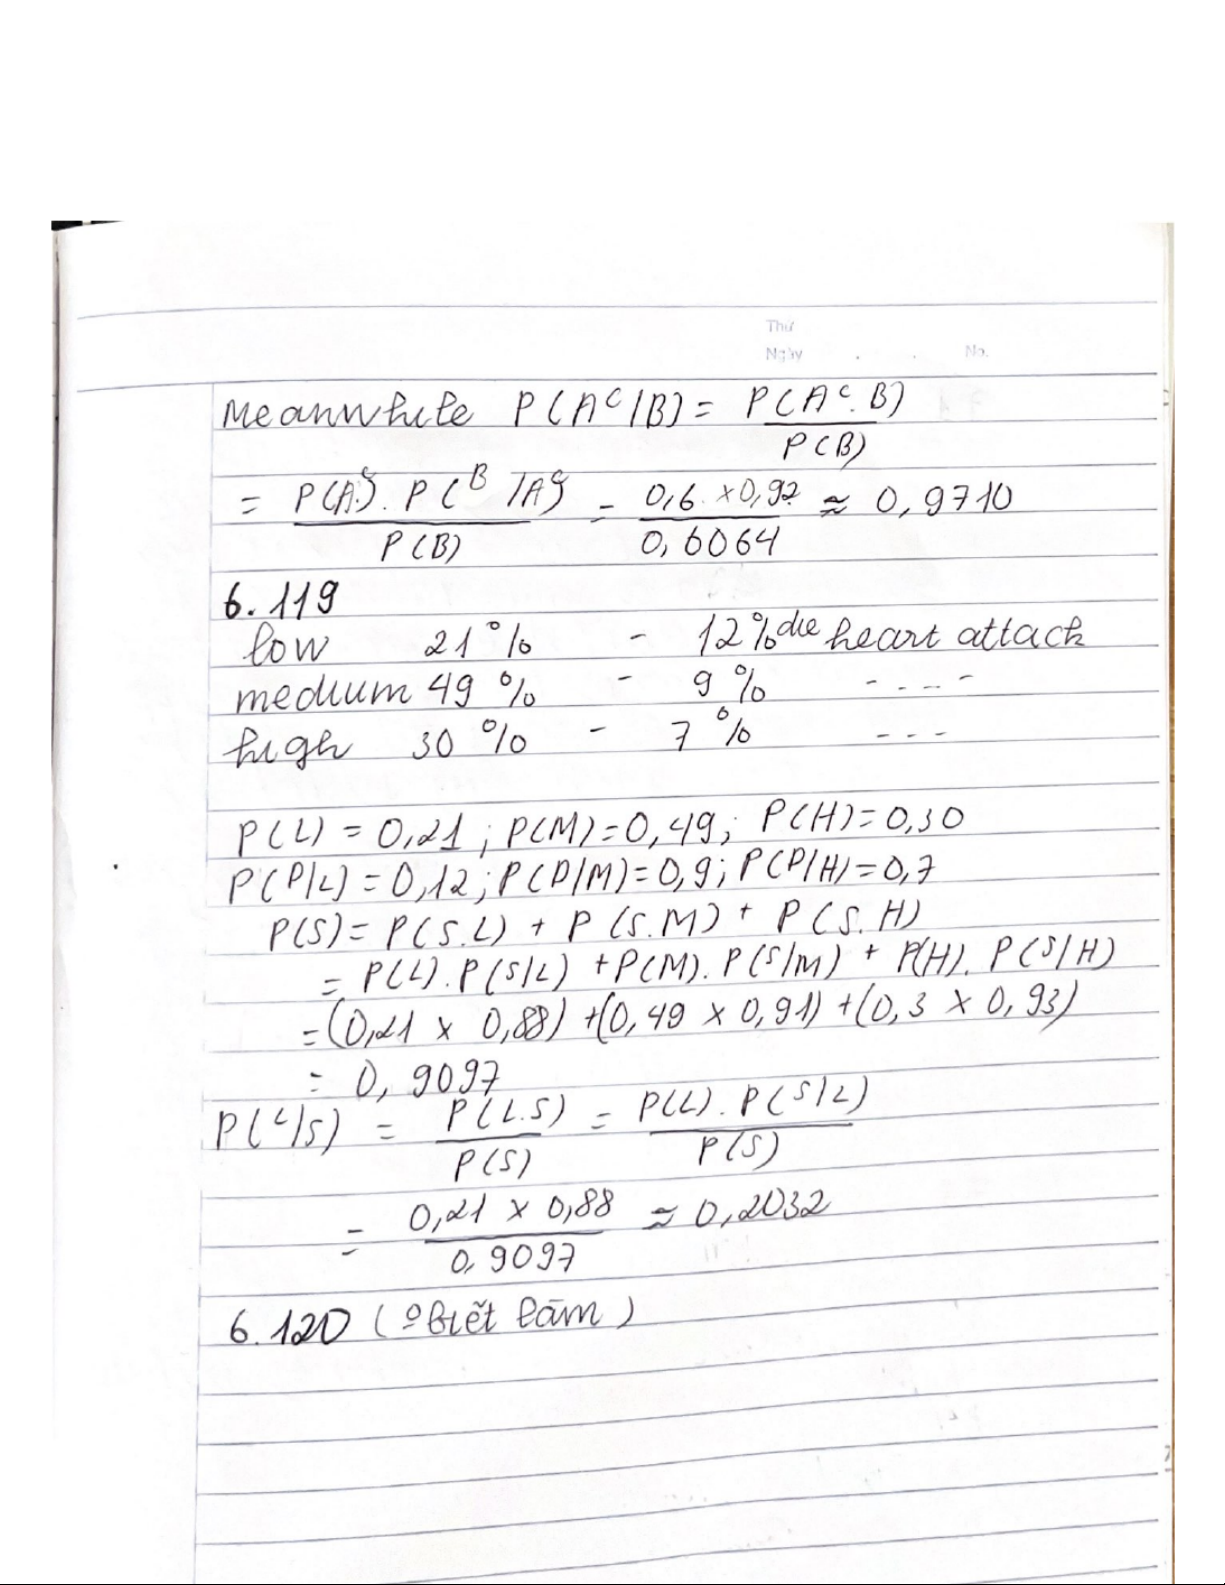 Thứ
Ngày . . No.
Meanwhile P(A^c/B) = P(A^c.B) / P(B)
= P(A^c). P(B/A^c) / P(B) = 0,6. x 0,92 / 0,6064 ≈ 0,9710
6.119
low 21% - 12% die heart attack
medium 49% - 9% - - - -
high 30% - 7% - - -
P(L) = 0,21; P(M) = 0,49; P(H) = 0,30
P(D/L) = 0,12; P(D/M) = 0,9; P(D/H) = 0,7
P(S) = P(S.L) + P(S.M) + P(S.H)
= P(L). P(S/L) + P(M). P(S/M) + P(H). P(S/H)
= (0,21 x 0,88) + (0,49 x 0,91) + (0,3 x 0,93)
= 0,9097
P(L/S) = P(L.S) / P(S) = P(L). P(S/L) / P(S)
= 0,21 x 0,88 / 0,9097 ≈ 0,2032
6.120 (º biết làm)